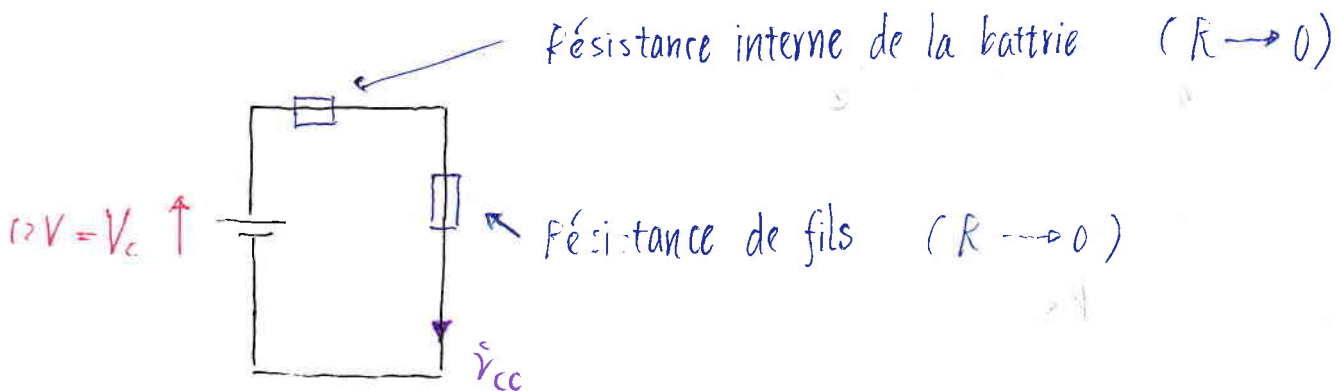 Résistance interne de la battrie (R → 0)
12V = Vc ↑
Résistance de fils (R → 0)
icc